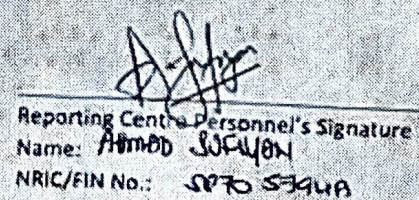 Reporting Centre Personnel's Signature
Name: AHMAD SUFIYAN
NRIC/FIN No.: